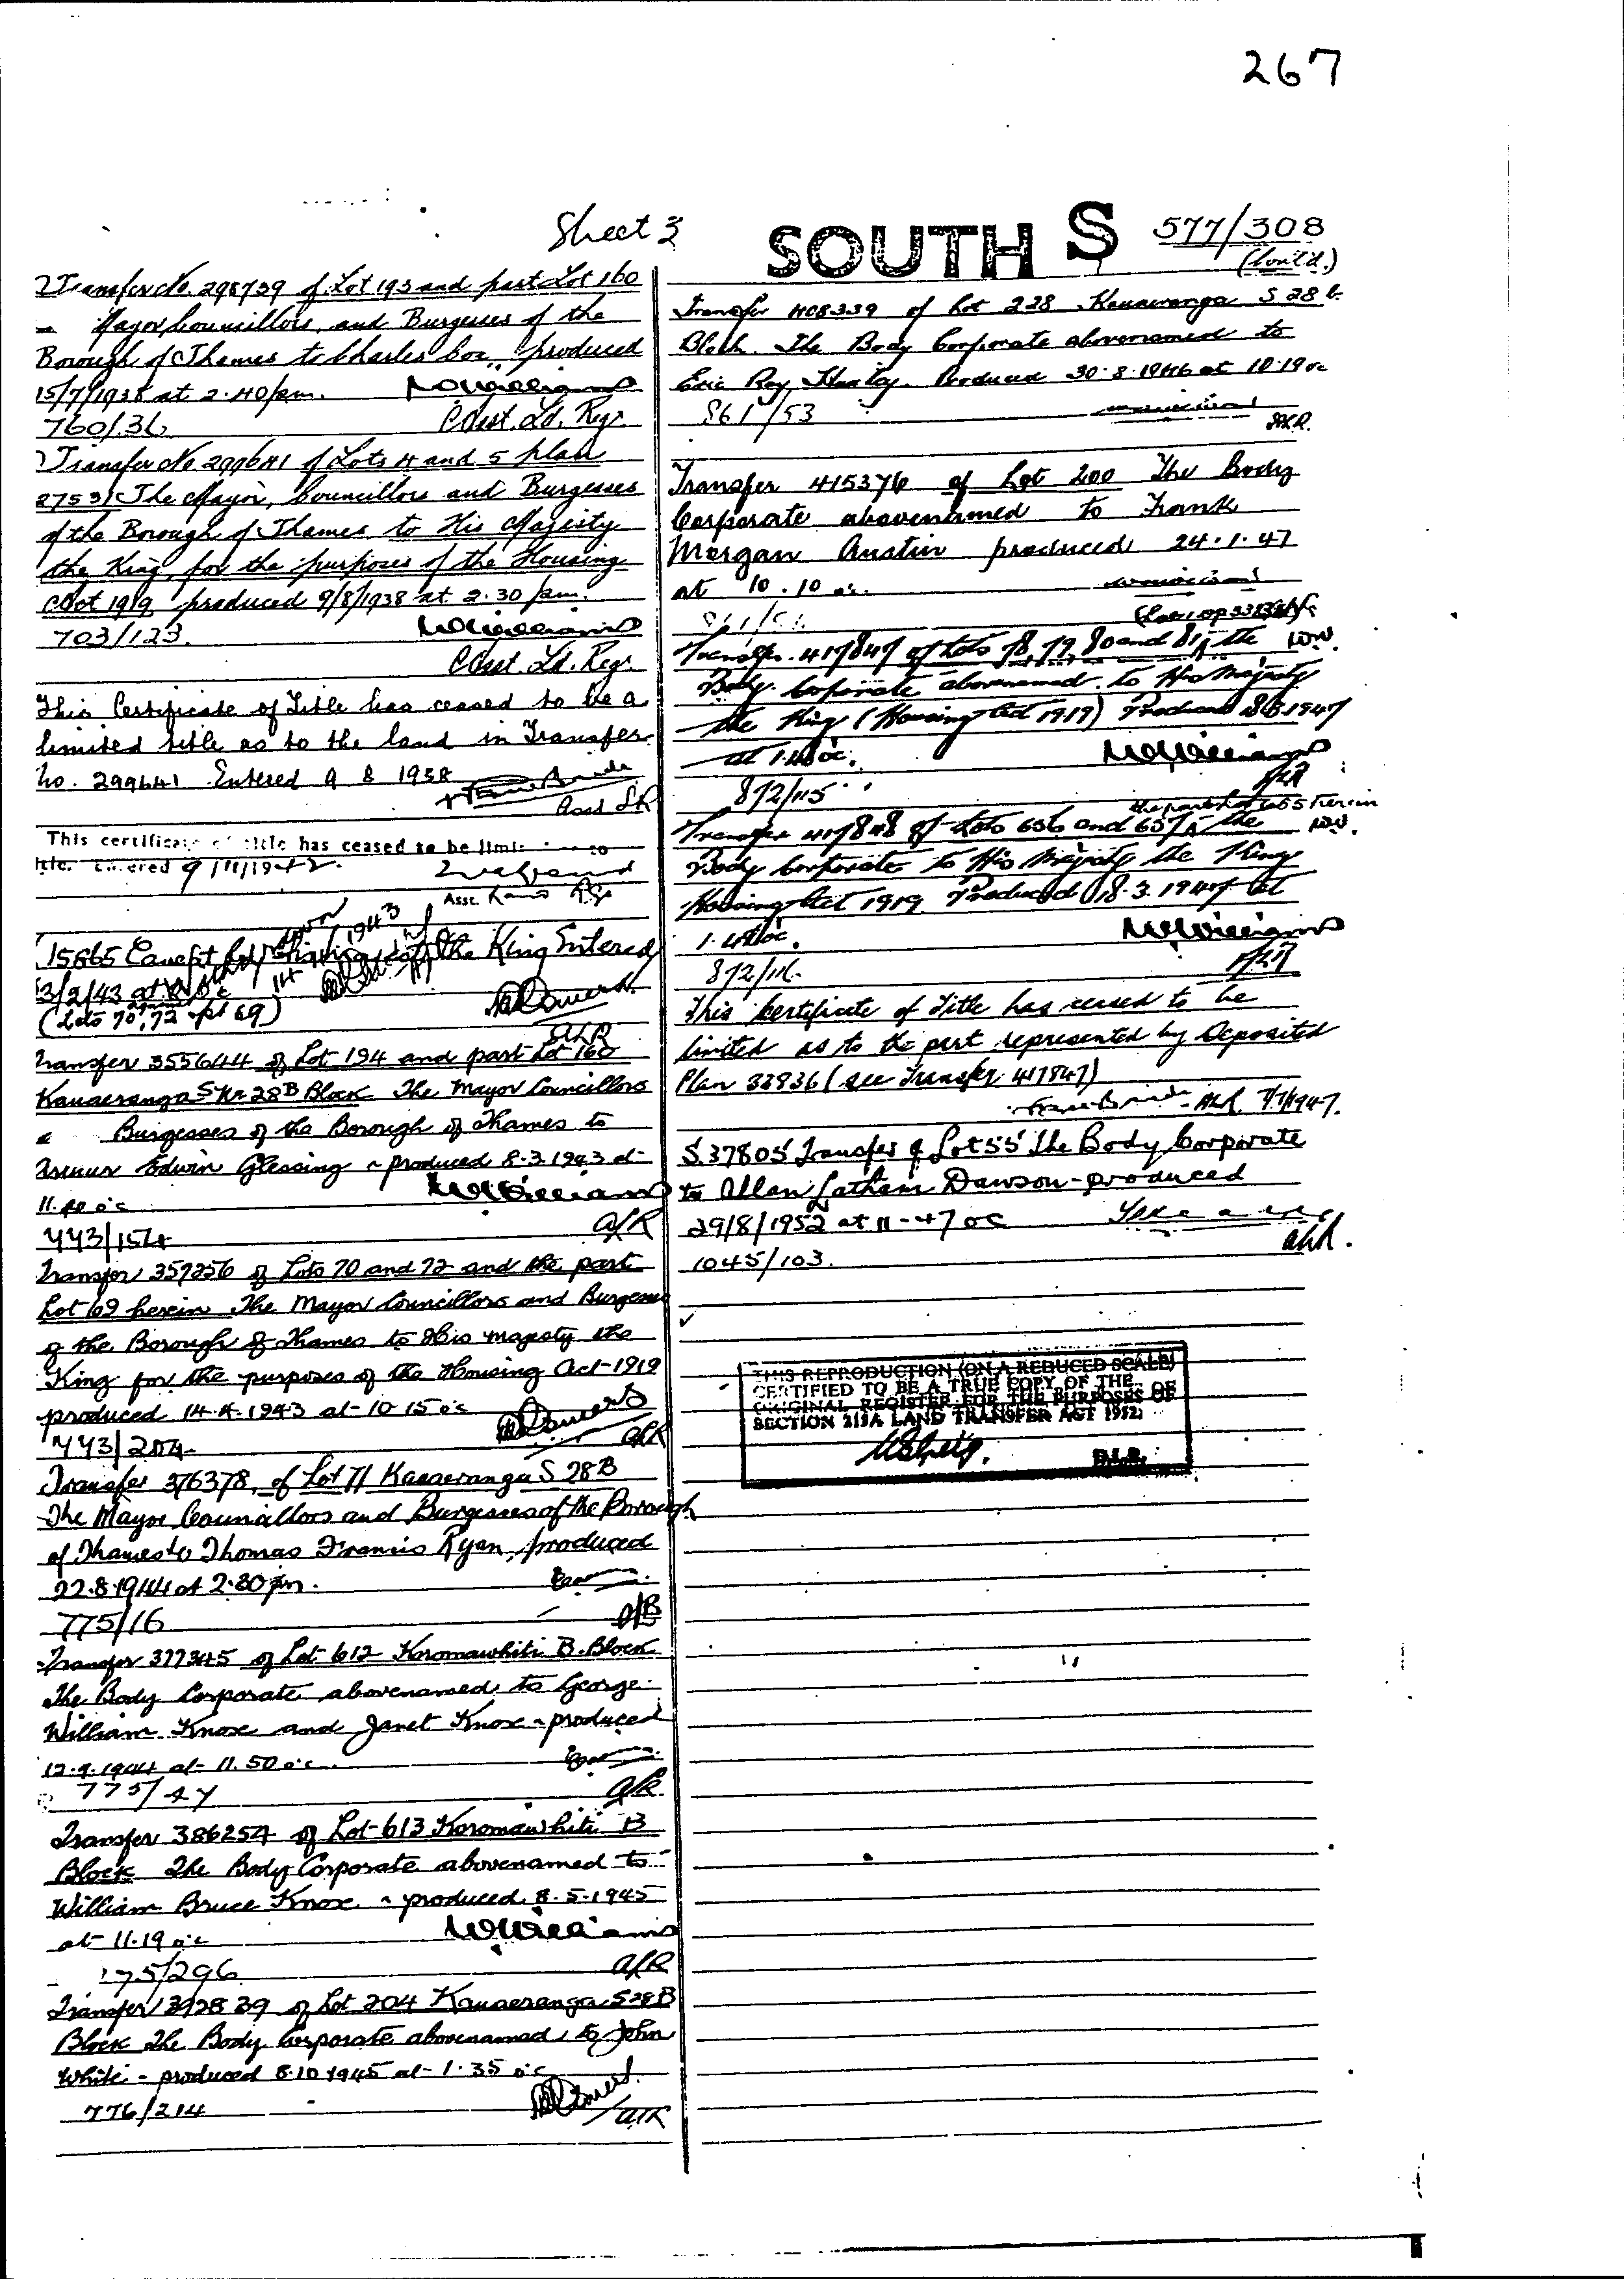 267
Sheet 3
SOUTH S 577/308
(Cont'd.)
Transfer No. 298739 of Lot 193 and part Lot 160
Mayor, Councillors, and Burgesses of the
Borough of Thames to Charles Cox, produced
15/7/1938 at 2.40 pm.
760/36 Asst. Ld. Regr.
Transfer No 299641 of Lots 4 and 5 plan
27531 The Mayor, Councillors and Burgesses
of the Borough of Thames to His Majesty
the King, for the purposes of the Housing
Act 1919 produced 9/8/1938 at 2.30 pm.
703/123.
Asst. Ld. Regr.
This Certificate of Title has ceased to be a
limited title as to the land in Transfer
No. 299641 Entered 9 8 1938
Asst LR
This certificate of title has ceased to be limited to
title. Entered 9/11/1942
Asst. Land Rgr
15865 Caveat by His Majesty the King Entered
3/2/43 at
(Lots 70, 72 pt 69)
14 1943
ALR
Transfer 355644 of Lot 194 and part Lot 160
Kauaeranga S No 28B Block The Mayor Councillors
Burgesses of the Borough of Thames to
Edwin Glessing - produced 8.3.1943 at
11.40 o'c
743/154 ALR
Transfer 357256 of Lots 70 and 72 and the part
Lot 69 herein The Mayor Councillors and Burgesses
of the Borough of Thames to His Majesty the
King for the purposes of the Housing Act 1919
produced 14.4.1943 at 10 15 o'c
743/204 ALR
Transfer 376378 of Lot 71 Kauaeranga S 28B
The Mayor Councillors and Burgesses of the Borough
of Thames to Thomas Francis Ryan, produced
22.8.1944 at 2.30 pm.
775/16 ALR
Transfer 377345 of Lot 612 Koromawhiti B. Block
The Body Corporate abovenamed to George
William Knox and Janet Knox - produced
12.9.1944 at 11.50 o'c
775/47 ALR
Transfer 386254 of Lot 613 Koromawhiti B
Block The Body Corporate abovenamed to
William Bruce Knox - produced 8.5.1945
at 11.19 o'c
775/296 ALR
Transfer 392839 of Lot 204 Kauaeranga S 28B
Block The Body Corporate abovenamed to John
White - produced 8.10 1945 at 1.35 o'c
776/214 ALR
Transfer 408339 of Lot 228 Kauaeranga S 28 b.
Block. The Body Corporate abovenamed to
Eric Roy Produced 30.8.1946 at 10.19 oc
861/53
ALR.
Transfer 415376 of Lot 200 The Body
Corporate abovenamed to Frank
Morgan Austin produced 24.1.47
at 10.10 oc.
Transfer 417847 of Lots 78, 79, 80 and 81 the
Body Corporate abovenamed to His Majesty
the King (Housing Act 1919) Produced 18.3.1947
at 1.40 oc.
872/115 ALR
the part Lot 655 herein
Transfer 417848 of Lots 656 and 657 the
Body Corporate to His Majesty the King
Housing Act 1919 Produced 18.3.1947 at
1.40 oc.
872/116. ALR
This certificate of Title has ceased to be
limited as to the part represented by Deposited
Plan 33836 (see Transfer 417847)
ALR 7/7/1947.
S.37805 Transfer of Lot 55 The Body Corporate
to Allan Latham Dawson - produced
29/8/1952 at 11-47 oc
1045/103. ALR.
THIS REPRODUCTION (ON A REDUCED SCALE)
CERTIFIED TO BE A TRUE COPY OF THE
ORIGINAL REGISTER FOR THE PURPOSES OF
SECTION 215A LAND TRANSFER ACT 1952.
D.L.R.